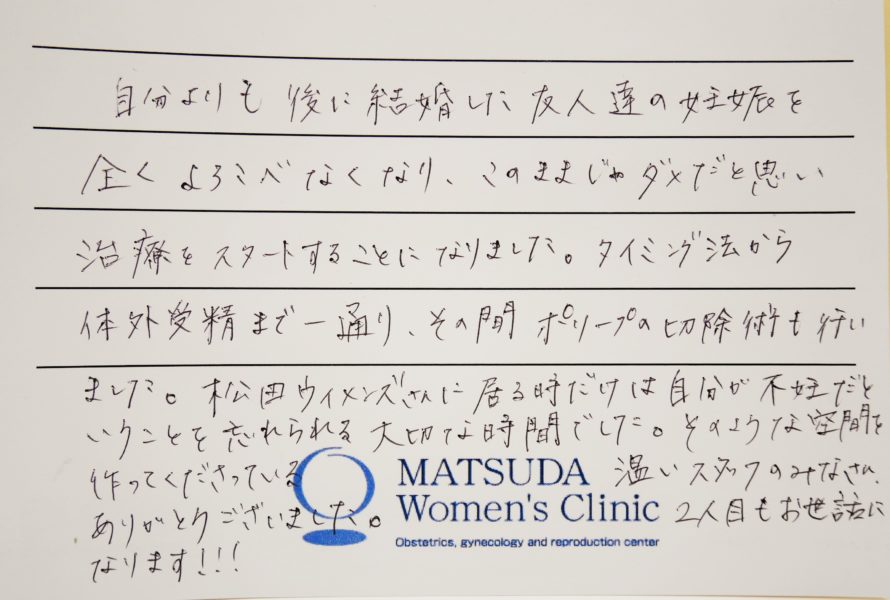 自分よりも後に結婚した友人達の妊娠を
全くよろこべなくなり、このままじゃダメだと思い
治療をスタートすることになりました。タイミング法から
体外受精まで一通り、その間ポリープの切除術も行い
ました。松田ウィメンズさんに居る時だけは自分が不妊だと
いうことを忘れられる大切な時間でした。そのような空間を
作ってくださっている 温いスタッフのみなさん、
ありがとうございました。 2人目もお世話に
なります!!!
MATSUDA
Women's Clinic
Obstetrics, gynecology and reproduction center